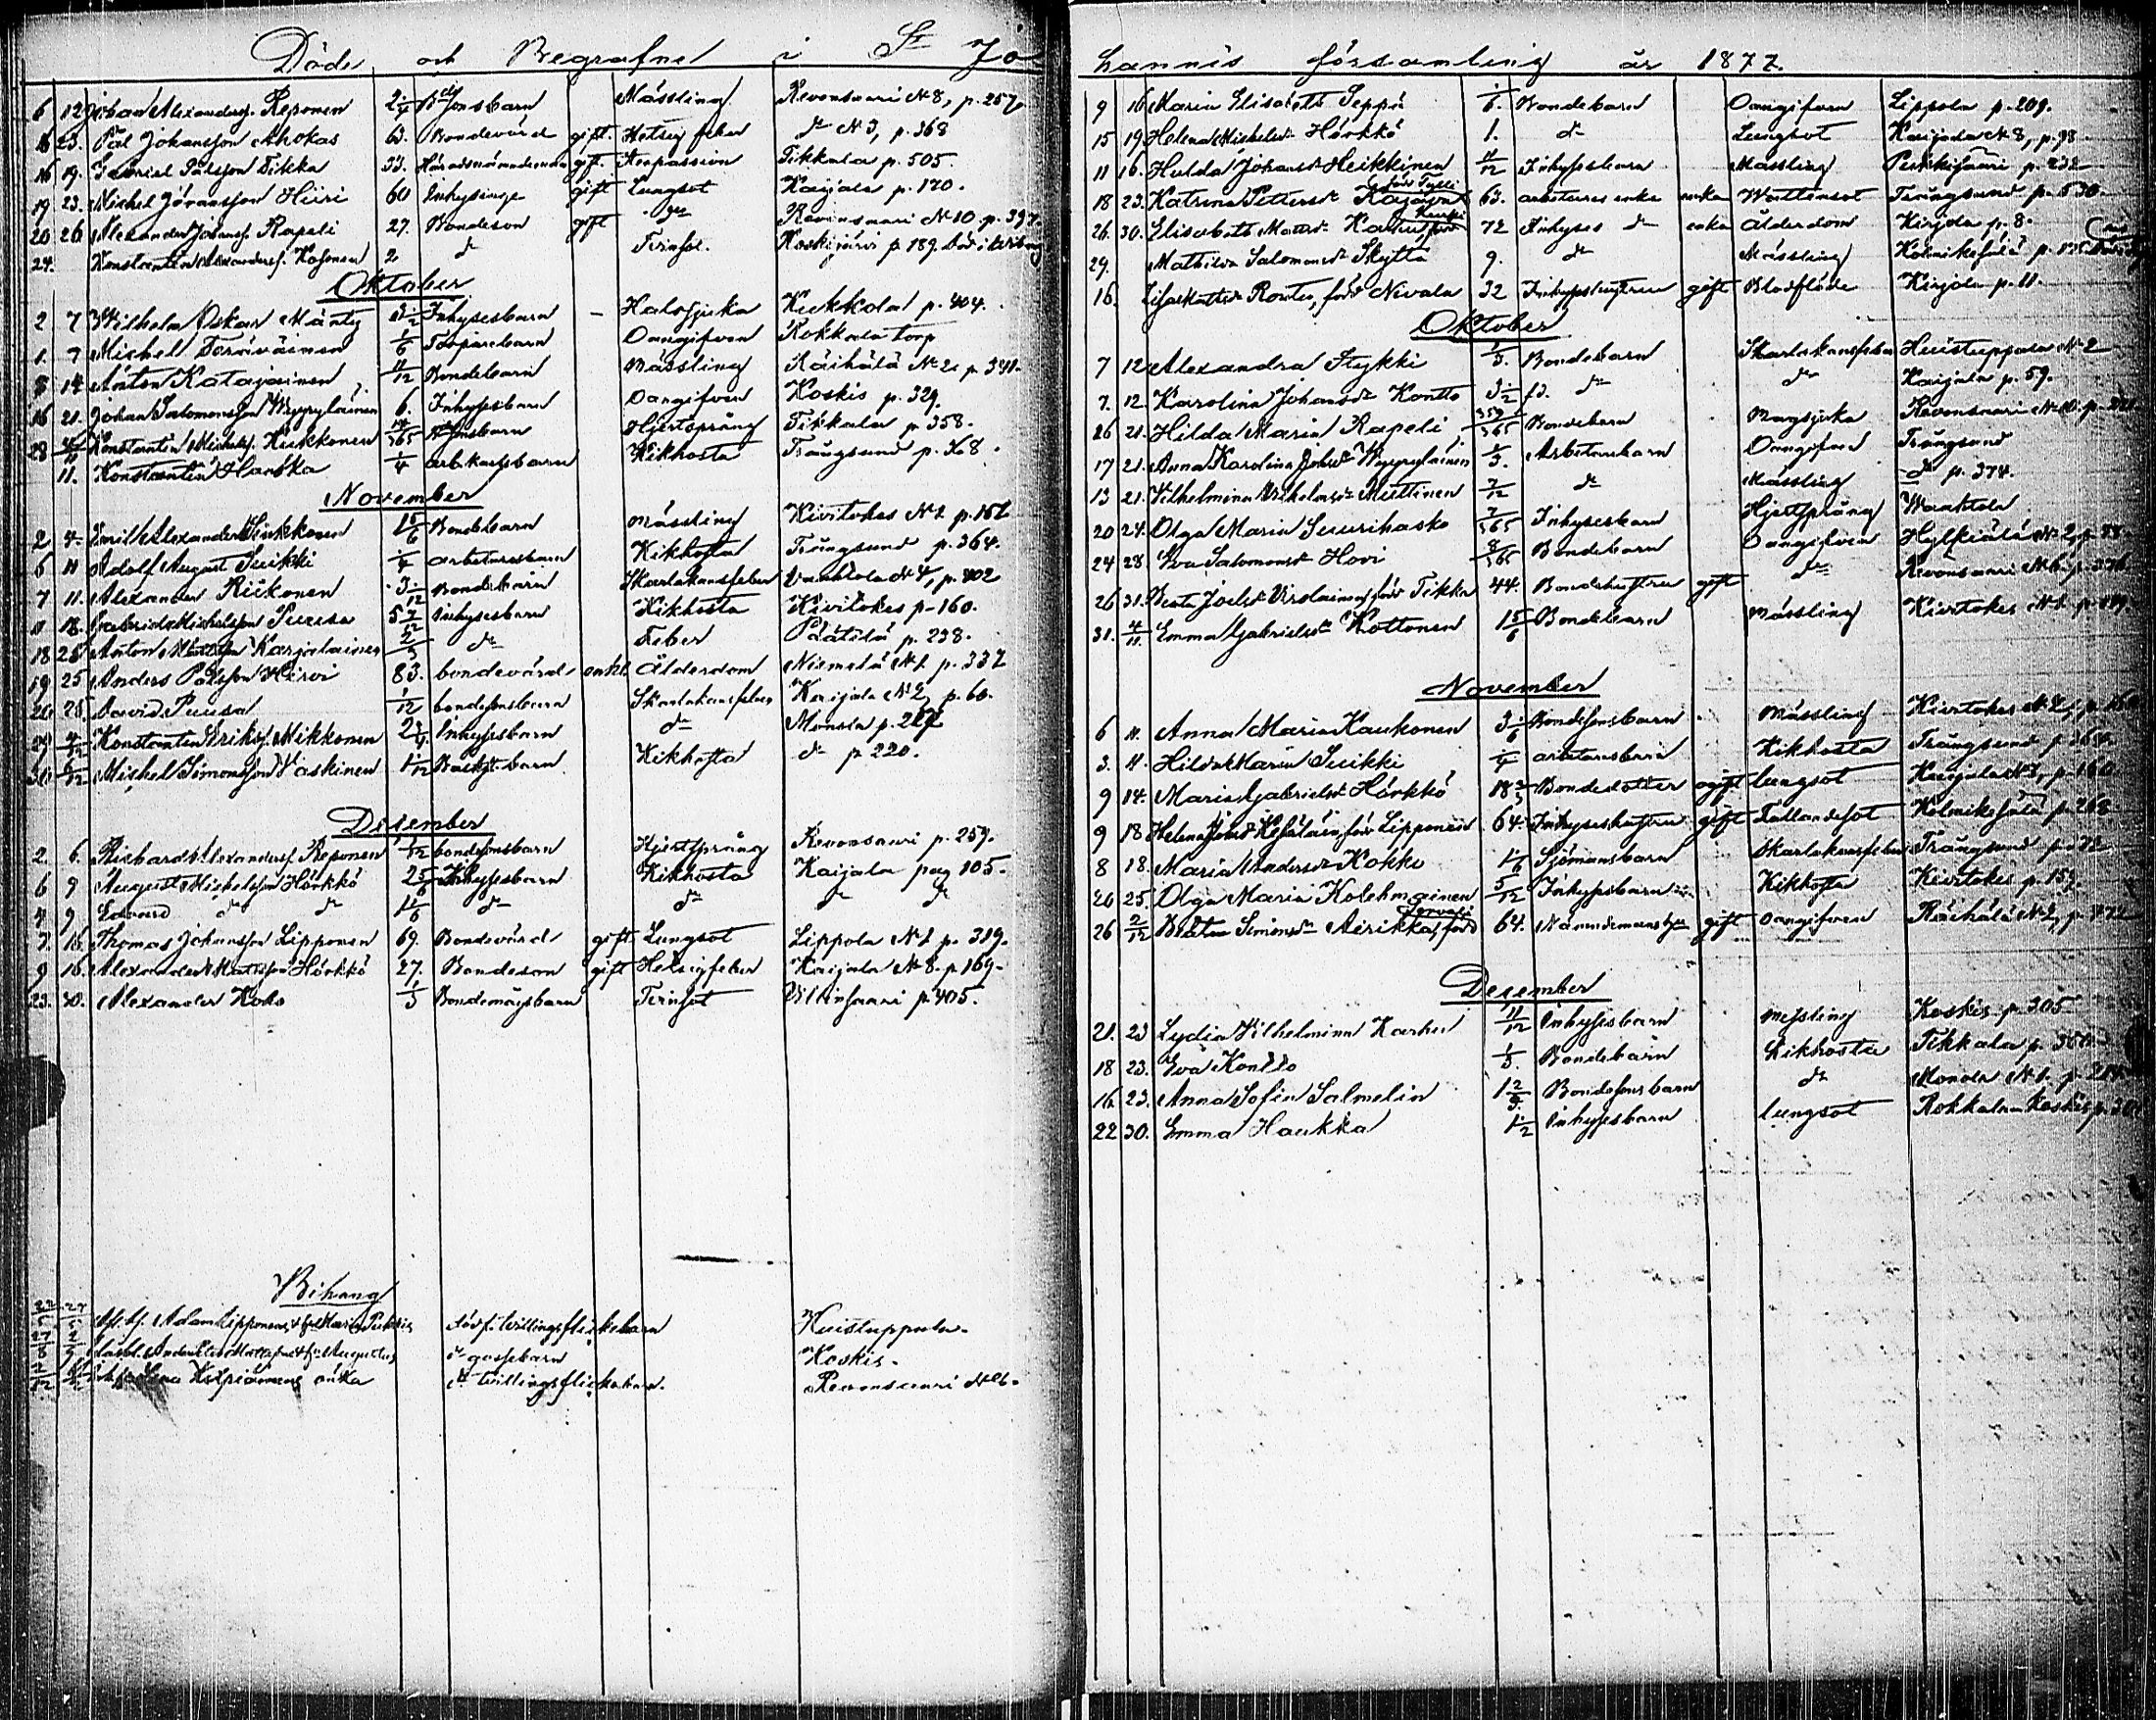 Döde och Begrafne i St Jo
6 12 Johan Alexandersf. Reponen 2 1/4 Bdesonsbarn Mässling Revonsaari N 8, p. 257
16 23. Pål Johansson Ahokas 63. Bondevärd gift. Hetsig feber do N 3, p. 368
16 19. Gabriel Pålsson Tikka 33. gift. Tikkala p. 505.
19 23. Michel Göransson Hiiri 60 Inhysinge gift Lungsot Kaijala p. 120.
20 26 Alexander Johansf. Rapeli 27. Bondeson gift do Revonsaari N 10 p. 397.
24. Konstantin Alexandersf. Kosonen 2 do Tvinsot. Koskijärvi p. 189. Död i Wiborg
Oktober
2 7 Wilhelm Oskar Mänty 3 1/2 Inhysesbarn - Halssjuka Kukkola p. 404.
1. 7 Michel Terväinen 1/6 Torparebarn Oangifven Rokkala torp
8 14 Anton Katajainen 11/12 Bondebarn Mässling Räihälä N 2 p. 341.
16 21. Johan Salomonsson Wepsäläinen 6. Inhysesbarn Oangifven Koskis p. 329.
28 Konstantin Michelsf. Kukkonen 14/365 Hjertsprång Tikkala p. 358.
11. Konstantin Haukka 1/4 arbetaresbarn Kikhosta Trångsund p. 368.
November
2 4. Emil Alexander Sinkkonen 1 5/6 Bondebarn Mässling Kiiritokes N 1 p. 152
6 11 Adolf August Suikki 1/4 arbetaresbarn Kikhosta Trångsund p. 364.
7 11. Alexander Riikonen 3/12 Bondebarn Skarlakansfeber N 4, p. 402
11 18. Gabriel Michelsson Puusa 5 7/12 Inhysesbarn Kikhosta Kiiritokes p. 160.
18 25 Anton Mattsson Karjalainen 2/3 do Feber Päätilä p. 238.
19 25 Anders Pålsson Hirvi 83. bondevärd enkl. Ålderdom Niemelä N 1. p. 337
20 25 David Puusa 1/12 bondesonsbarn Skarlakansfeber Kaijala N 2, p. 60.
29 4/12 Konstantin Eriksf. Mikkonen 2 1/4 Inhysesbarn do Monola p. 217
30 6/12 Michel Simonsson Vaskinen 1 1/12 Backst. barn Kikhosta do p. 220.
December
2. 6. Richard Alexandersf. Reponen 1/12 bondesonsbarn Hjertsprång Revonsaari p. 259.
6 9 August Michelsson Hörkkö 2 5/6 Inhysesbarn Kikhosta Kaijala pag 105.
4 9 Edvard do do 1 1/6 do do do do
7. 16. Thomas Johansson Lipponen 69. Bondevärd gift Lungsot Lippola N 1 p. 319.
9 16. Alexander Mattsson Hörkkö 27. Bondeson gift Hetsigfeber Kaijala N 8. p. 169.
23. 30. Alexander Koho 1/3 Bondemågsbarn Tvinsot Wilkinsaari p. 405.
Bihang
Adam Lipponens & Maria dödf. tvillingsflickebarn Huistuppula.
do gossebarn Koskis.
enka do tvillingsflickebarn. Revonsaari N 6.
hannis församling år 1877.
9 16 Maria Elisabeth Seppä 1/6. Bondebarn Oangifven Lippola p. 209.
15 19 Helena Michelsdr Hörkkö 1. do Lungsot Kaijala N 8, p. 98
11 16. Hulda Johansdr Heikkinen 11/12 Inhysesbarn Mässling p. 232
18 23. Katrina Pettersdr född Tylli 63. arbetares enka enka Wattensot Trångsund p. 530.
26. 30. Elisabeth Mattsdr 72 Inhyses do enka Ålderdom Kirjola p. 8.
29. Mathilda Salomonsdr Skyttä 9. do Mässling Kolmikesälä
16. född Nivala 32 Inhyseshustru gift Blodflöde Kirjola p. 11.
Oktober
7 12 Alexandra Stykki 1/3. Bondebarn Skarlakansfeber Huistuppala N 2
7. 12. Karolina Johansdr Kontto 3 1/2 do do Kaijala p. 59.
16 21. Hilda Maria Rapeli Bondebarn Magsjuka Revonsaari N 10. p.
17 21. Anna Karolina Johsdr Wepsäläinen 1/3. Arbetarebarn Oangifven Trångsund
13 21. Vilhelmina Wilhelmsdr Muttinen 7/12 do Mässling do p. 374.
20 24. Olga Maria Suurihasko 7/365 Inhysesbarn Hjertsprång Waahtola
24 28 Eva Salomonsdr Hovi 8/365 Bondebarn Oangifven Hylkiälä N 2, p.
26 31. Beata Joelsdr Virolainen född Tikka 44. Bondehustru gift do Revonsaari N 6. p.
31. 4/11 Emma Gabrielsdr Kottonen 1 5/6 Bondebarn Mässling Kiiritokes N 1.
November
6 11. Anna Maria Kaukonen 3 1/6 Bondesonsbarn Mässling Kiiritokes N 2,
3. 11. Hilda Maria Suikki 1/4 arbetaresbarn Kikhosta Trångsund p. 364.
9 14. Maria Gabrielsdr Hörkkö 18 2/3 Bondedotter ogift lungsot Kaijala p. 160
9 18 Helena född Lipponen 64. Inhyseshustru gift Fallandesot Kolmikesälä p. 268
8 18. Maria Andersdr Kokko 1 1/6 Sjömansbarn Skarlakansfeber Trångsund
20 25. Olga Maria Kolehmainen 5/12 Inhysesbarn Kikhosta Kiiritokes p. 159.
26 2/12 Beata Simonsdr Airikka, född 64. Nämndemanshu gift Oangifven Räihälä N 2, p.
December
21. 23 Lydia Vilhelmina Karhu 11/12 Inhysesbarn Messling Koskis p. 305
18 23. Eva Kontto 1/3. Bondebarn Kikhosta Tikkala p.
16. 23. Anna Sofia Salmelin 1 2/3. Bondesonsbarn do Monola N 1. p.
22 30. Emma Haukka 1 1/2 Inhysesbarn lungsot Rokkala Koskis p.